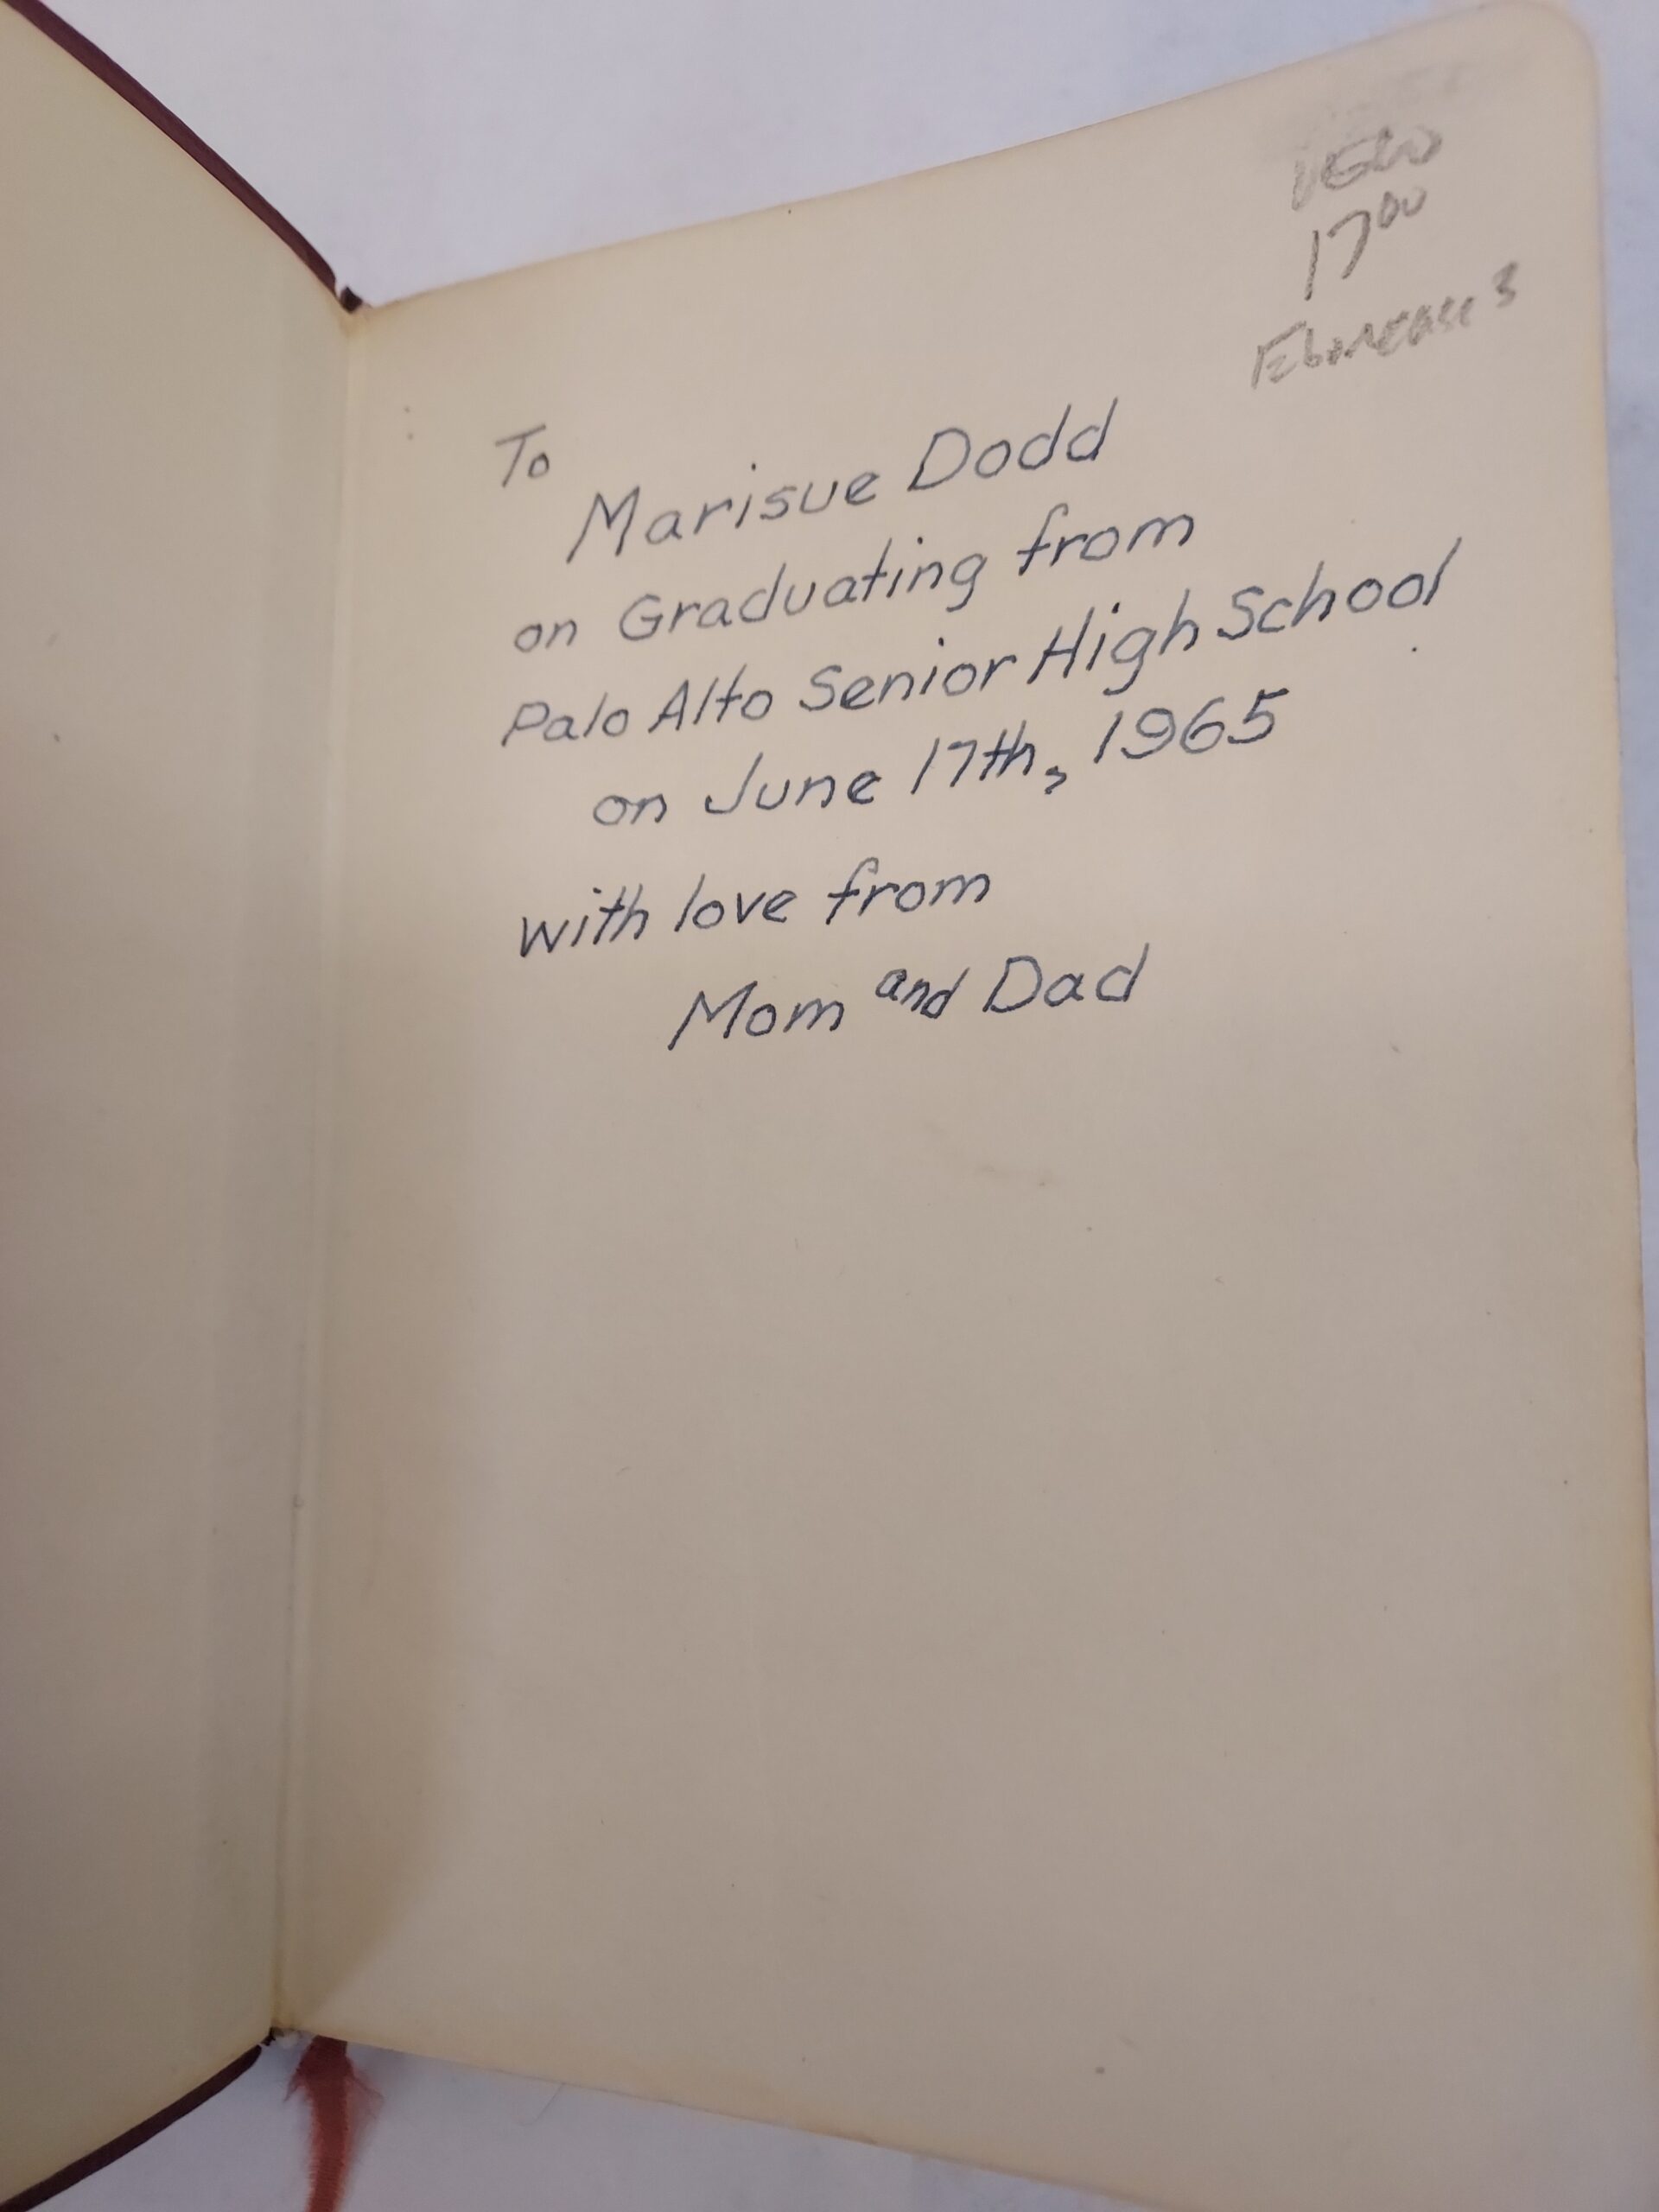 17⁰⁰
To
Marisue Dodd
on Graduating from
Palo Alto Senior High School
on June 17th, 1965
with love from
Mom and Dad